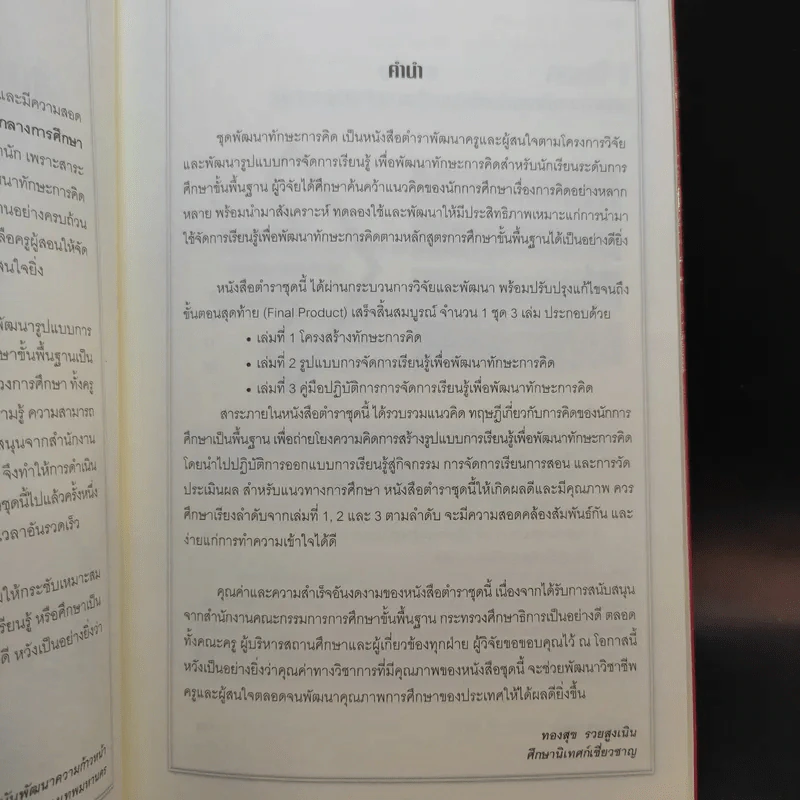 และมีความสอด
กลางการศึกษา
นัก เพราะสาระ
นาทักษะการคิด
านอย่างครบถ้วน
ลือครูผู้สอนให้จัด
สนใจยิ่ง
พัฒนารูปแบบการ
ษาขั้นพื้นฐานเป็น
วงการศึกษา ทั้งครู
ามรู้ ความสามารถ
สนุนจากสำนักงาน
จึงทำให้การดำเนิน
ชุดนี้ไปแล้วครั้งหนึ่ง
เวลาอันรวดเร็ว
มให้กระชับเหมาะสม
รียนรู้ หรือศึกษาเป็น
ดี หวังเป็นอย่างยิ่งว่า
นพัฒนาความก้าวหน้า
งเทพมหานคร
คำนำ
ชุดพัฒนาทักษะการคิด เป็นหนังสือตำราพัฒนาครูและผู้สนใจตามโครงการวิจัย
และพัฒนารูปแบบการจัดการเรียนรู้ เพื่อพัฒนาทักษะการคิดสำหรับนักเรียนระดับการ
ศึกษาขั้นพื้นฐาน ผู้วิจัยได้ศึกษาค้นคว้าแนวคิดของนักการศึกษาเรื่องการคิดอย่างหลาก
หลาย พร้อมนำมาสังเคราะห์ ทดลองใช้และพัฒนาให้มีประสิทธิภาพเหมาะแก่การนำมา
ใช้จัดการเรียนรู้เพื่อพัฒนาทักษะการคิดตามหลักสูตรการศึกษาขั้นพื้นฐานได้เป็นอย่างดียิ่ง
หนังสือตำราชุดนี้ ได้ผ่านกระบวนการวิจัยและพัฒนา พร้อมปรับปรุงแก้ไขจนถึง
ขั้นตอนสุดท้าย (Final Product) เสร็จสิ้นสมบูรณ์ จำนวน 1 ชุด 3 เล่ม ประกอบด้วย
• เล่มที่ 1 โครงสร้างทักษะการคิด
• เล่มที่ 2 รูปแบบการจัดการเรียนรู้เพื่อพัฒนาทักษะการคิด
• เล่มที่ 3 คู่มือปฏิบัติการการจัดการเรียนรู้เพื่อพัฒนาทักษะการคิด
สาระภายในหนังสือตำราชุดนี้ ได้รวบรวมแนวคิด ทฤษฎีเกี่ยวกับการคิดของนักการ
ศึกษาเป็นพื้นฐาน เพื่อถ่ายโยงความคิดการสร้างรูปแบบการเรียนรู้เพื่อพัฒนาทักษะการคิด
โดยนำไปปฏิบัติการออกแบบการเรียนรู้สู่กิจกรรม การจัดการเรียนการสอน และการวัด
ประเมินผล สำหรับแนวทางการศึกษา หนังสือตำราชุดนี้ให้เกิดผลดีและมีคุณภาพ ควร
ศึกษาเรียงลำดับจากเล่มที่ 1, 2 และ 3 ตามลำดับ จะมีความสอดคล้องสัมพันธ์กัน และ
ง่ายแก่การทำความเข้าใจได้ดี
คุณค่าและความสำเร็จอันงดงามของหนังสือตำราชุดนี้ เนื่องจากได้รับการสนับสนุน
จากสำนักงานคณะกรรมการการศึกษาขั้นพื้นฐาน กระทรวงศึกษาธิการเป็นอย่างดี ตลอด
ทั้งคณะครู ผู้บริหารสถานศึกษาและผู้เกี่ยวข้องทุกฝ่าย ผู้วิจัยขอขอบคุณไว้ ณ โอกาสนี้
หวังเป็นอย่างยิ่งว่าคุณค่าทางวิชาการที่มีคุณภาพของหนังสือชุดนี้ จะช่วยพัฒนาวิชาชีพ
ครูและผู้สนใจตลอดจนพัฒนาคุณภาพการศึกษาของประเทศให้ได้ผลดียิ่งขึ้น
ทองสุข รวยสูงเนิน
ศึกษานิเทศก์เชี่ยวชาญ